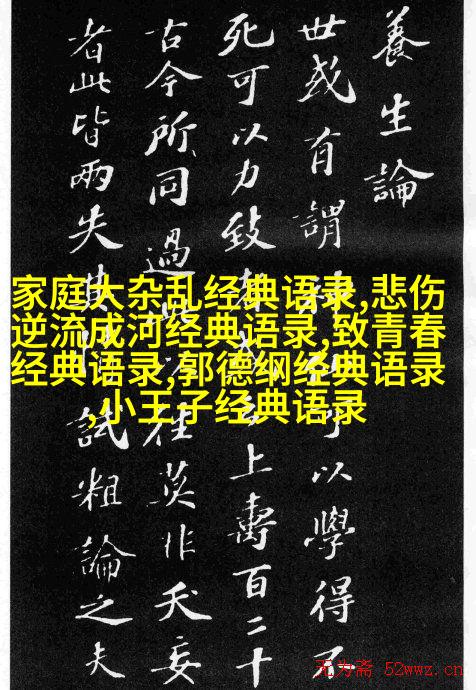 養生論
世或有謂以學得不
死可以力致上壽百二十
古今所同過往莫非夭妄
者此皆兩失試粗論之夫
家庭大杂乱经典语录,悲伤
逆流成河经典语录,致青春
经典语录,郭德纲经典语录
,小王子经典语录
无为斋 52wwz.cn